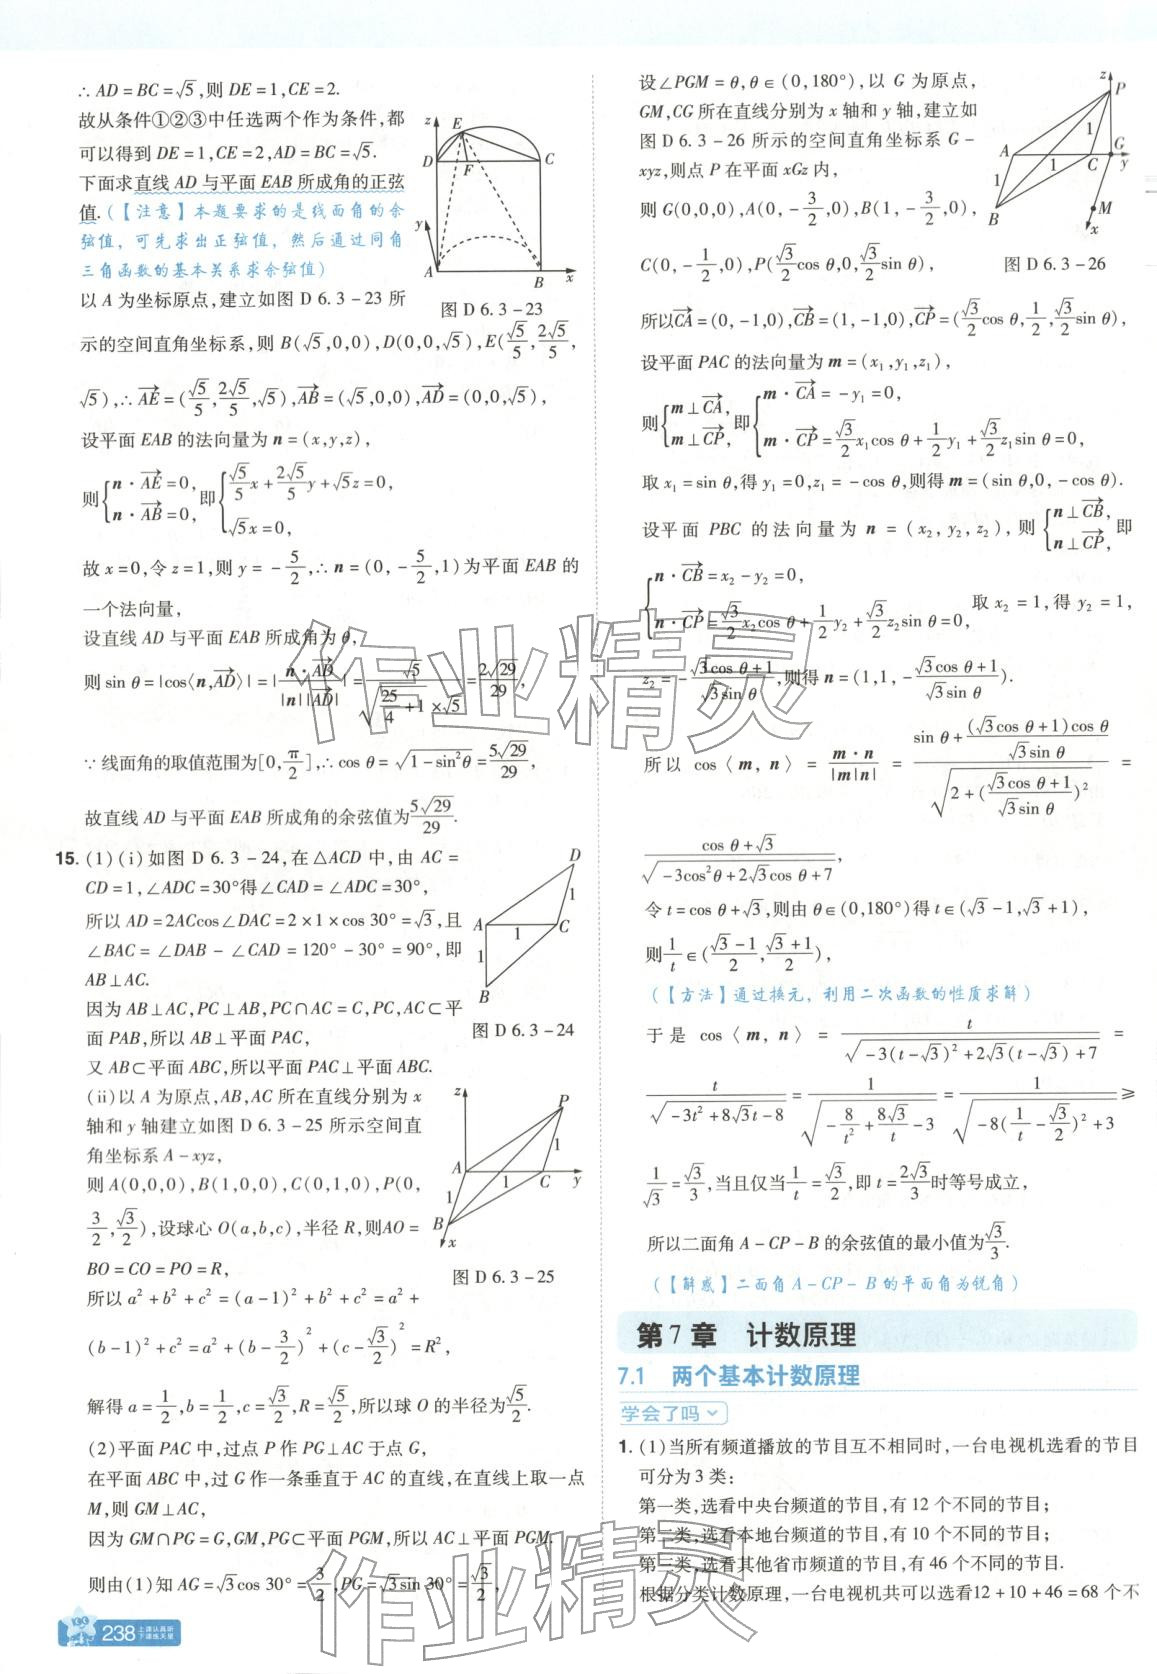 ∴ AD = BC = √5,则 DE = 1,CE = 2.
故从条件①②③中任选两个作为条件,都
可以得到 DE = 1,CE = 2,AD = BC = √5.
下面求直线 AD 与平面 EAB 所成角的正弦
值.(【注意】本题要求的是线面角的余
弦值,可先求出正弦值,然后通过同角
三角函数的基本关系求余弦值)
以 A 为坐标原点,建立如图 D 6.3-23 所
z E D F C y A B x
图 D 6.3-23
示的空间直角坐标系,则 B(√5,0,0),D(0,0,√5),E(√5/5,2√5/5,
√5),∴AE→ = (√5/5,2√5/5,√5),AB→ = (√5,0,0),AD→ = (0,0,√5),
设平面 EAB 的法向量为 n = (x,y,z),
则{n·AE→ = 0, n·AB→ = 0,即{√5/5 x + 2√5/5 y + √5z = 0, √5x = 0,
故 x = 0,令 z = 1,则 y = -5/2,∴ n = (0,-5/2,1)为平面 EAB 的
一个法向量,
设直线 AD 与平面 EAB 所成角为 θ,
则 sin θ = |cos⟨n,AD→⟩| = |n·AD→/(|n||AD→|)| = √5/(√(25/4+1)×√5) = 2√29/29,
∵ 线面角的取值范围为[0,π/2],∴ cos θ = √(1-sin²θ) = 5√29/29,
故直线 AD 与平面 EAB 所成角的余弦值为5√29/29.
15. (1)(i)如图 D 6.3-24,在△ACD 中,由 AC =
CD = 1,∠ADC = 30°得∠CAD = ∠ADC = 30°,
所以 AD = 2ACcos∠DAC = 2×1×cos 30° = √3,且
∠BAC = ∠DAB - ∠CAD = 120° - 30° = 90°,即
AB⊥AC.
因为 AB⊥AC,PC⊥AB,PC∩AC = C,PC,AC⊂平
面 PAB,所以 AB⊥平面 PAC,
又 AB⊂平面 ABC,所以平面 PAC⊥平面 ABC.
D 1 A 1 C B
图 D 6.3-24
(ii)以 A 为原点,AB,AC 所在直线分别为 x
轴和 y 轴建立如图 D 6.3-25 所示空间直
角坐标系 A-xyz,
则 A(0,0,0),B(1,0,0),C(0,1,0),P(0,
3/2,√3/2),设球心 O(a,b,c),半径 R,则AO =
BO = CO = PO = R,
z P 1 A C y 1 B x
图 D 6.3-25
所以 a²+b²+c² = (a-1)²+b²+c² = a²+
(b-1)²+c² = a²+(b-3/2)²+(c-√3/2)² = R²,
解得 a = 1/2,b = 1/2,c = √3/2,R = √5/2,所以球 O 的半径为√5/2.
(2)平面 PAC 中,过点 P 作 PG⊥AC 于点 G,
在平面 ABC 中,过 G 作一条垂直于 AC 的直线,在直线上取一点
M,则 GM⊥AC,
因为 GM∩PG = G,GM,PG⊂平面 PGM,所以 AC⊥平面 PGM.
则由(1)知 AG = √3cos 30° = 3/2,PG = √3sin 30° = √3/2,
238 上课认真听
下课练天星
设∠PGM = θ,θ∈(0,180°),以 G 为原点,
GM,CG 所在直线分别为 x 轴和 y 轴,建立如
图 D 6.3-26 所示的空间直角坐标系 G-
xyz,则点 P 在平面 xGz 内,
则 G(0,0,0),A(0,-3/2,0),B(1,-3/2,0),
C(0,-1/2,0),P(√3/2cos θ,0,√3/2sin θ),
z P 1 A G 1 C y 1 B M x
图 D 6.3-26
所以CA→ = (0,-1,0),CB→ = (1,-1,0),CP→ = (√3/2cos θ,1/2,√3/2sin θ),
设平面 PAC 的法向量为 m = (x₁,y₁,z₁),
则{m⊥CA→, m⊥CP→,即{m·CA→ = -y₁ = 0, m·CP→ = √3/2x₁cos θ+1/2y₁+√3/2z₁sin θ = 0,
取 x₁ = sin θ,得 y₁ = 0,z₁ = -cos θ,则得 m = (sin θ,0,-cos θ).
设平面 PBC 的法向量为 n = (x₂,y₂,z₂),则{n⊥CB→, n⊥CP→,即
{n·CB→ = x₂-y₂ = 0, n·CP→ = √3/2x₂cos θ+1/2y₂+√3/2z₂sin θ = 0, 取 x₂ = 1,得 y₂ = 1,
z₂ = -(√3cos θ+1)/(√3sin θ),则得 n = (1,1,-(√3cos θ+1)/(√3sin θ)).
所以 cos⟨m,n⟩ = m·n/(|m||n|) = (sin θ+(√3cos θ+1)cos θ/(√3sin θ))/√(2+((√3cos θ+1)/(√3sin θ))²) =
(cos θ+√3)/√(-3cos²θ+2√3cos θ+7),
令 t = cos θ+√3,则由 θ∈(0,180°)得 t∈(√3-1,√3+1),
则1/t∈((√3-1)/2,(√3+1)/2),
(【方法】通过换元,利用二次函数的性质求解)
于是 cos⟨m,n⟩ = t/√(-3(t-√3)²+2√3(t-√3)+7) =
t/√(-3t²+8√3t-8) = 1/√(-8/t²+8√3/t-3) = 1/√(-8(1/t-√3/2)²+3) ≥
1/√3 = √3/3,当且仅当1/t = √3/2,即 t = 2√3/3时等号成立,
所以二面角 A-CP-B 的余弦值的最小值为√3/3.
(【解惑】二面角 A-CP-B 的平面角为锐角)
第 7 章 计数原理
7.1 两个基本计数原理
学会了吗
1. (1)当所有频道播放的节目互不相同时,一台电视机选看的节目
可分为 3 类:
第一类,选看中央台频道的节目,有 12 个不同的节目;
第二类,选看本地台频道的节目,有 10 个不同的节目;
第三类,选看其他省市频道的节目,有 46 个不同的节目.
根据分类计数原理,一台电视机共可以选看12 + 10 + 46 = 68 个不
作业精灵
作业精灵